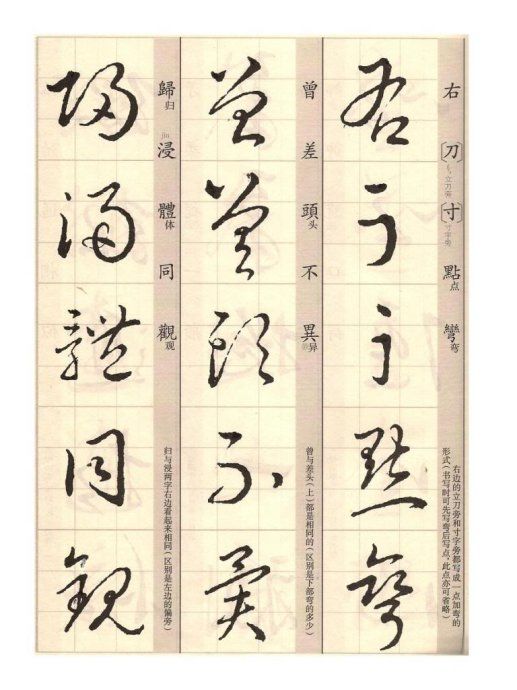 右〔刀〕〔寸〕點彎
刂,立刀旁
寸字旁
点
弯
右刀寸點彎
右边的立刀旁和寸字旁都写成一点加弯的
形式(书写时可先写弯后写点,此点亦可省略)
曾差頭不異
头
异
曾差頭不異
曾与差头(上)都是相同的(区别是下部弯的多少)
歸浸體同觀
归
jìn
体
观
歸浸體同觀
归与浸两字右边看起来相同(区别是左边的偏旁)